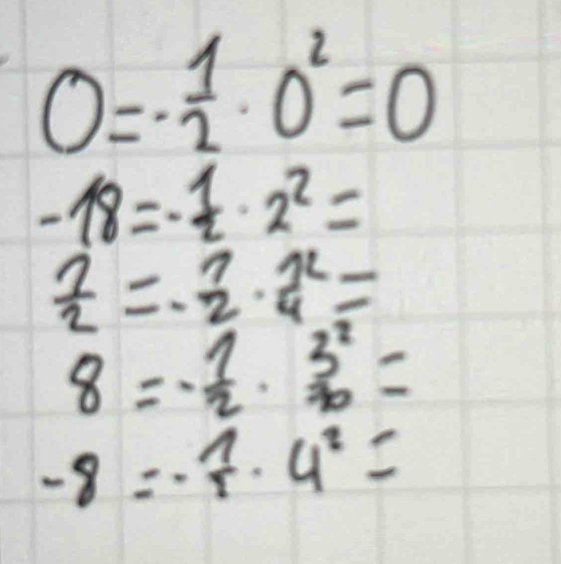 0 = -1/2 · 0² = 0
-18 = -1/2 · 2² =
1/2 = -1/2 · 1/4² =
8 = -1/2 · 3²/10 =
-8 = -1/2 · 4² =